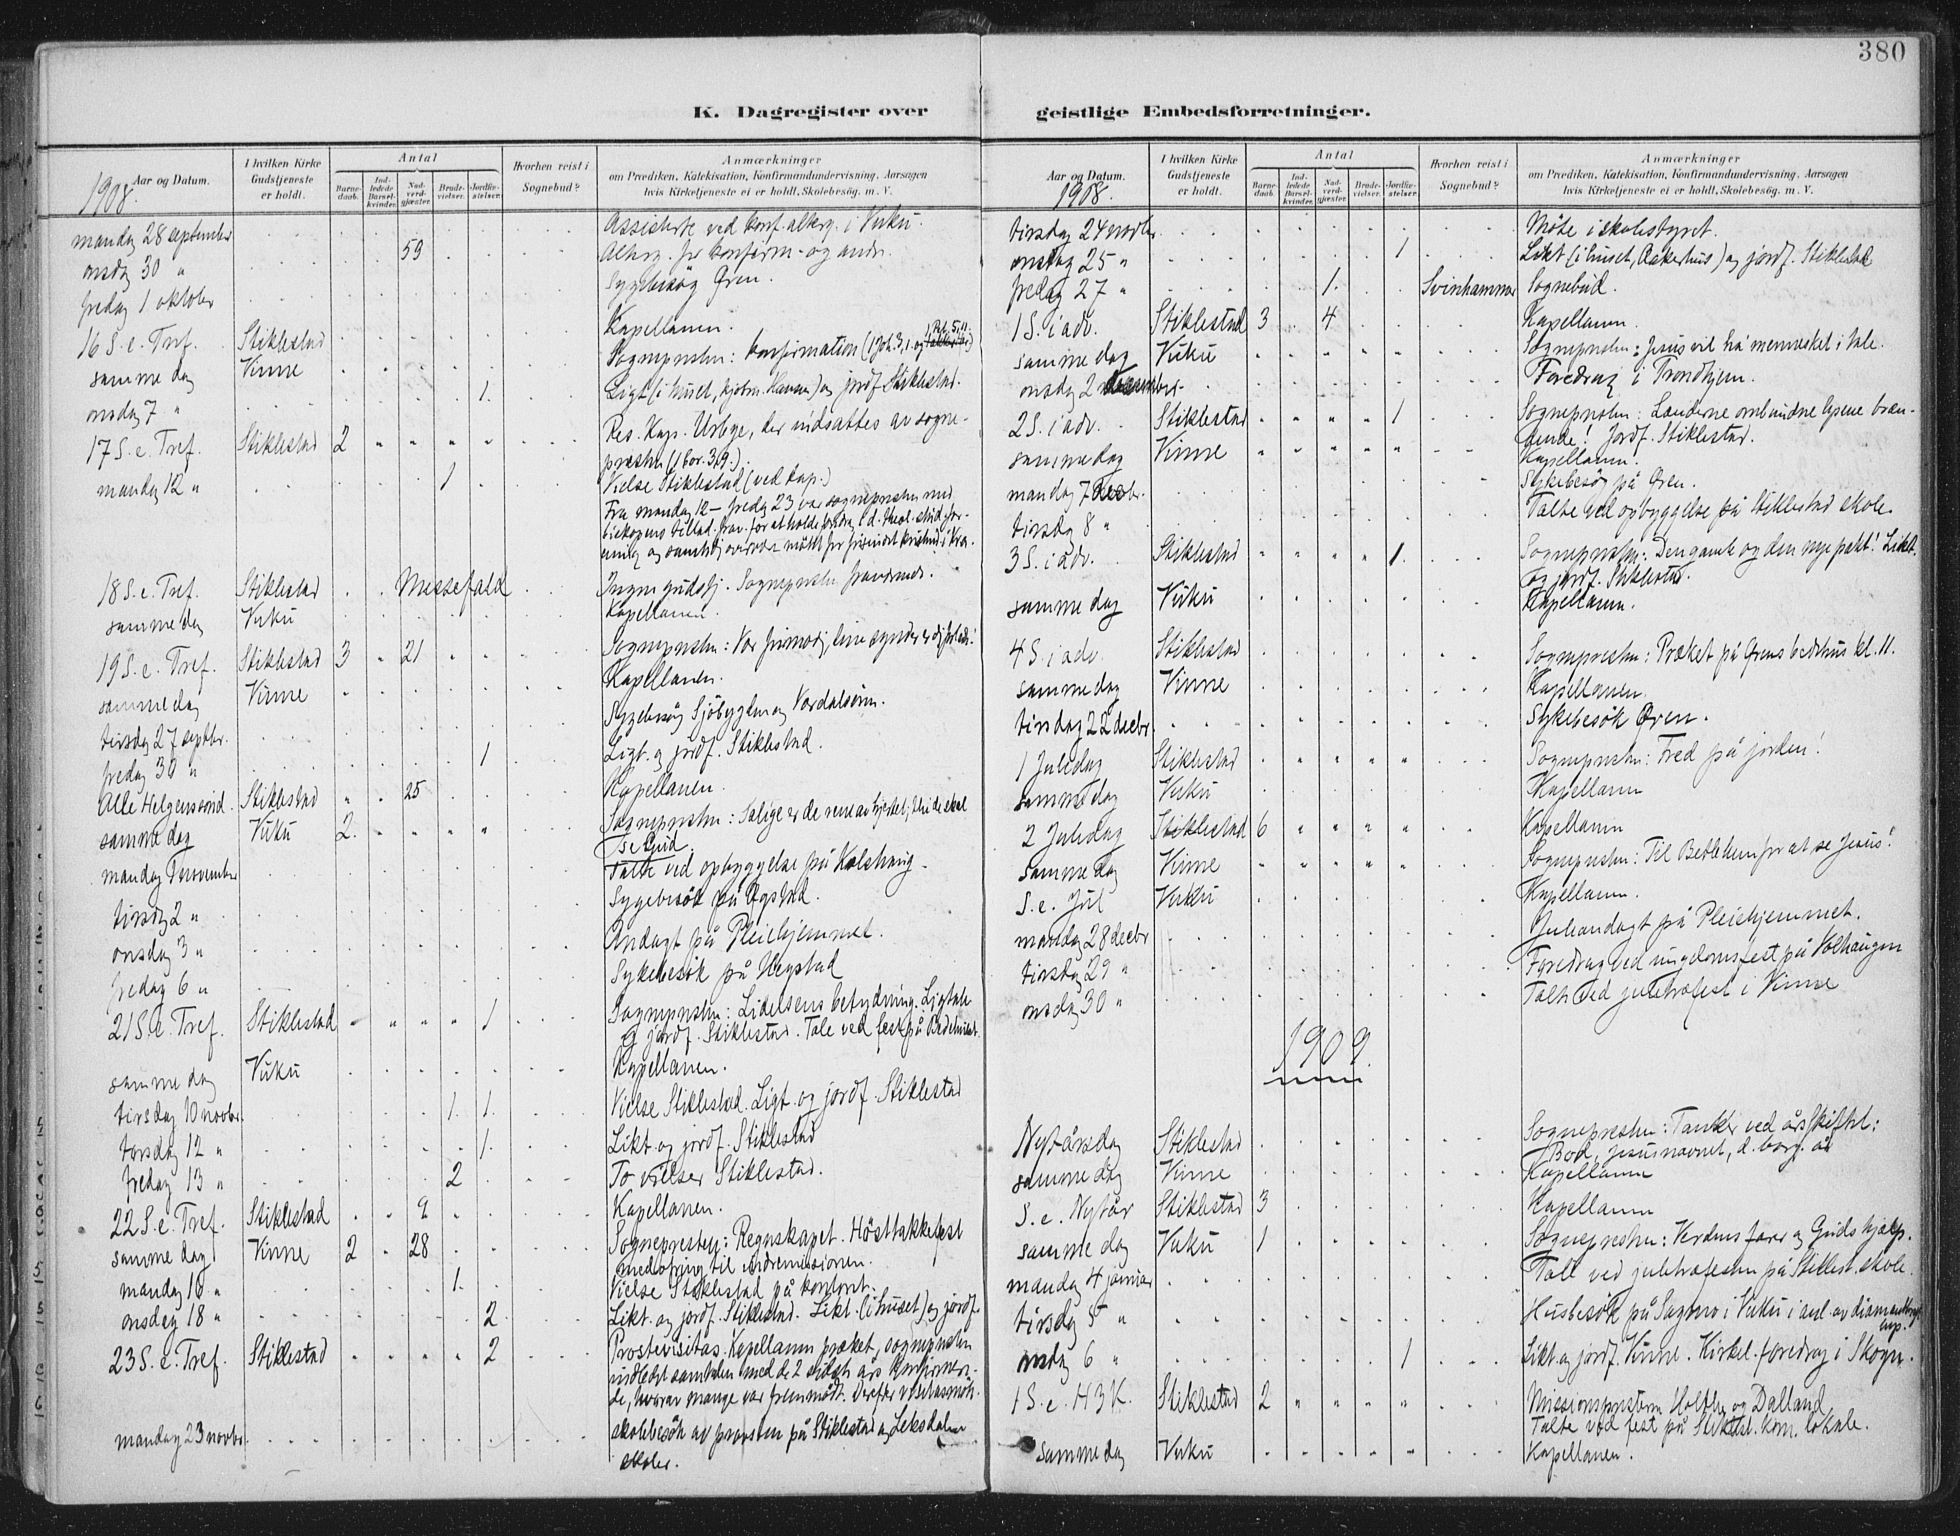 380
K. Dagregister over
geistlige Embedsforretninger.
Aar og Datum.
1908.
I hvilken Kirke Gudstjeneste er holdt.
Antal
Barnedaab.
Indledede Barselkvinder.
Nadverdgjæster.
Brudevielser.
Jordfæstelser.
Hvorhen reist i Sognebud?
Anmærkninger
om Prædiken, Katekisation, Konfirmandundervisning, Aarsagen
hvis Kirketjeneste ei er holdt, Skolebesøg. m. V.
mandag 28 september Assisterte ved konf. altarg. i Vuku.
onsdag 30 " 59 Altarg. for konfirm- og andr.
fredag 1 oktober Sygebesøg Øren.
16 S. e. Tref. Stiklestad Kapellanen.
samme dag Vinne Sognepresten: Konfirmation (1 Joh. 3,1. og
onsdag 7 " 1. Ligt. (i huset, ) og jordf. Stiklestad.
17 S. e. Tref. Stiklestad 2 " " " " Res. Kap. Urbye, der indsattes av sogne-
præsten (1 Cor. 3,9.).
mandag 12 " 1 Vielse Stiklestad (ved kap.)
Fra mandag 12 – fredag 23 var sognepresten med
biskopens tillad. frav. for at holde foredrag i d. theol. stud. for-
ening og
18 S. e. Tref. Stiklestad Messefald Ingen gudstj. Sognepresten fraværende.
samme dag Vuku Kapellanen.
19 S. e. Tref. Stiklestad 3 " 21 Sognepresten: Vær frimodig, dine synder er dig forladt!
samme dag Vinne Kapellanen.
tirsdag 27 septbr. Sygebesøg Sjøbygden og Værdalsøren.
fredag 30 " 1 Ligt. og jordf. Stiklestad.
Alle Helgens sønd. Stiklestad " 25 Kapellanen.
samme dag Vuku 2. " " " " Sognepresten: Salige er de rene av hjertet, thi de skal
se Gud.
mandag 1 november Talte ved opbyggelse på Kolshaug.
tirsdag 2 " Sygebesøk på
onsdag 3 " Andagt på Pleiehjemmet.
fredag 6 " Sykebesøk på Hegstad
21 S. e. Tref. Stiklestad " " " " 1 Sognepresten: Lidelsens betydning. Ligtale
og jordf. Stiklestad. Tale ved fest på Bedehuset.
samme dag Vuku Kapellanen.
tirsdag 10 novbr. 1. 1. Vielse Stiklestad. Ligt. og jordf. Stiklestad
torsdag 12 " 1. Likt. og jordf. Stiklestad
fredag 13 " 2 To vielser Stiklestad.
22 S. e. Tref. Stiklestad 9 Kapellanen.
samme dag Vinne 2 " 28 Sognepresten: Regnskapet. Høsttakkefest
med ofring til indremissionen.
mandag 16 " 1. Vielse Stiklestad på kontoret.
onsdag 18 " 2 Likt. og jordf. Stiklestad. Likt. (i huset) og jordf.
23 S. e. Tref. Stiklestad 2 Prostevisitas. Kapellanen præket, sognepresten
indledet samtalen med de 2 sidste års konfirmer-
te, hvorav mange var fremmødt. Derefter visitasmøte.
mandag 23 novbr. skolebesøk av prosten på Stiklestad og Leksdalen
skoler.
Aar og Datum.
1908.
I hvilken Kirke Gudstjeneste er holdt.
Antal
Barnedaab.
Indledede Barselkvinder.
Nadverdgjæster.
Brudevielser.
Jordfæstelser.
Hvorhen reist i Sognebud?
Anmærkninger
om Prædiken, Katekisation, Konfirmandundervisning, Aarsagen
hvis Kirketjeneste ei er holdt, Skolebesøg. m. V.
tirsdag 24 novbr. Møte i skolestyret.
onsdag 25 " 1 Likt. (i huset, Aakerhus) og jordf. Stiklestad
fredag 27 " 1. Svinhammar Sognebud.
1 S. i adv. Stiklestad 3 4 Kapellanen.
samme dag Vuku Sognepresten: Jesus vil ha mennesket i tale.
onsdag 2 december Foredrag i Trondhjem.
2 S. i adv. Stiklestad " " " " 1 Sognepresten: Lænderne ombundne lysene bræn-
dende! Jordf. Stiklestad.
samme dag Vinne Kapellanen.
mandag 7 decbr. Sykebesøg på Øren.
tirsdag 8 " Talte ved opbyggelse på Stiklestad skole.
3 S. i adv. Stiklestad " " " " 1 Sognepresten: Den gamle og den nye pakt! Likt.
og jordf. Stiklestad.
samme dag Vuku Kapellanen.
4 S. i adv. Stiklestad Sognepresten: Præket på Ørens bedehus kl. 11.
samme dag Vinne Kapellanen.
tirsdag 22 decbr. Sykebesøk Øren.
1 Juledag Stiklestad Sognepresten: Fred på jorden!
samme dag Vuku Kapellanen
2 Juledag Stiklestad 6 " " " " Kapellanen
samme dag Vinne Sognepresten: Til Betlehem for at se Jesus!
S. e. Jul Vuku Kapellanen.
mandag 28 decbr. Juleandagt på Pleiehjemmet.
tirsdag 29 " Foredrag ved ungdomsfest på Volhaugen
onsdag 30 " Talte ved juletræfest i Vinne
1909
Nytårsdag Stiklestad Sognepresten: Tanker ved årsskiftet:
Bod, Jesusnavnet, d. borg. år
samme dag Vinne Kapellanen
S. e. Nytår Stiklestad 3 Kapellanen
samme dag Vuku 1 Sognepresten: Verdens farer og Guds hjælp.
mandag 4 januar Talt ved juletræfesten på Stiklest. skole.
tirsdag 5 " Husbesøk på i Vuku i anl. av diamantbryl-
lup.
onsdag 6 " 1 Likt. og jordf. Vinne. Kirkel. foredrag i Skogn.
1 S. e. H3K. Stiklestad 2 " " " " Missionspresterne Holthe og Dalland
Talte ved fest på Stiklest. kom. lokale.
samme dag Vuku Kapellanen.